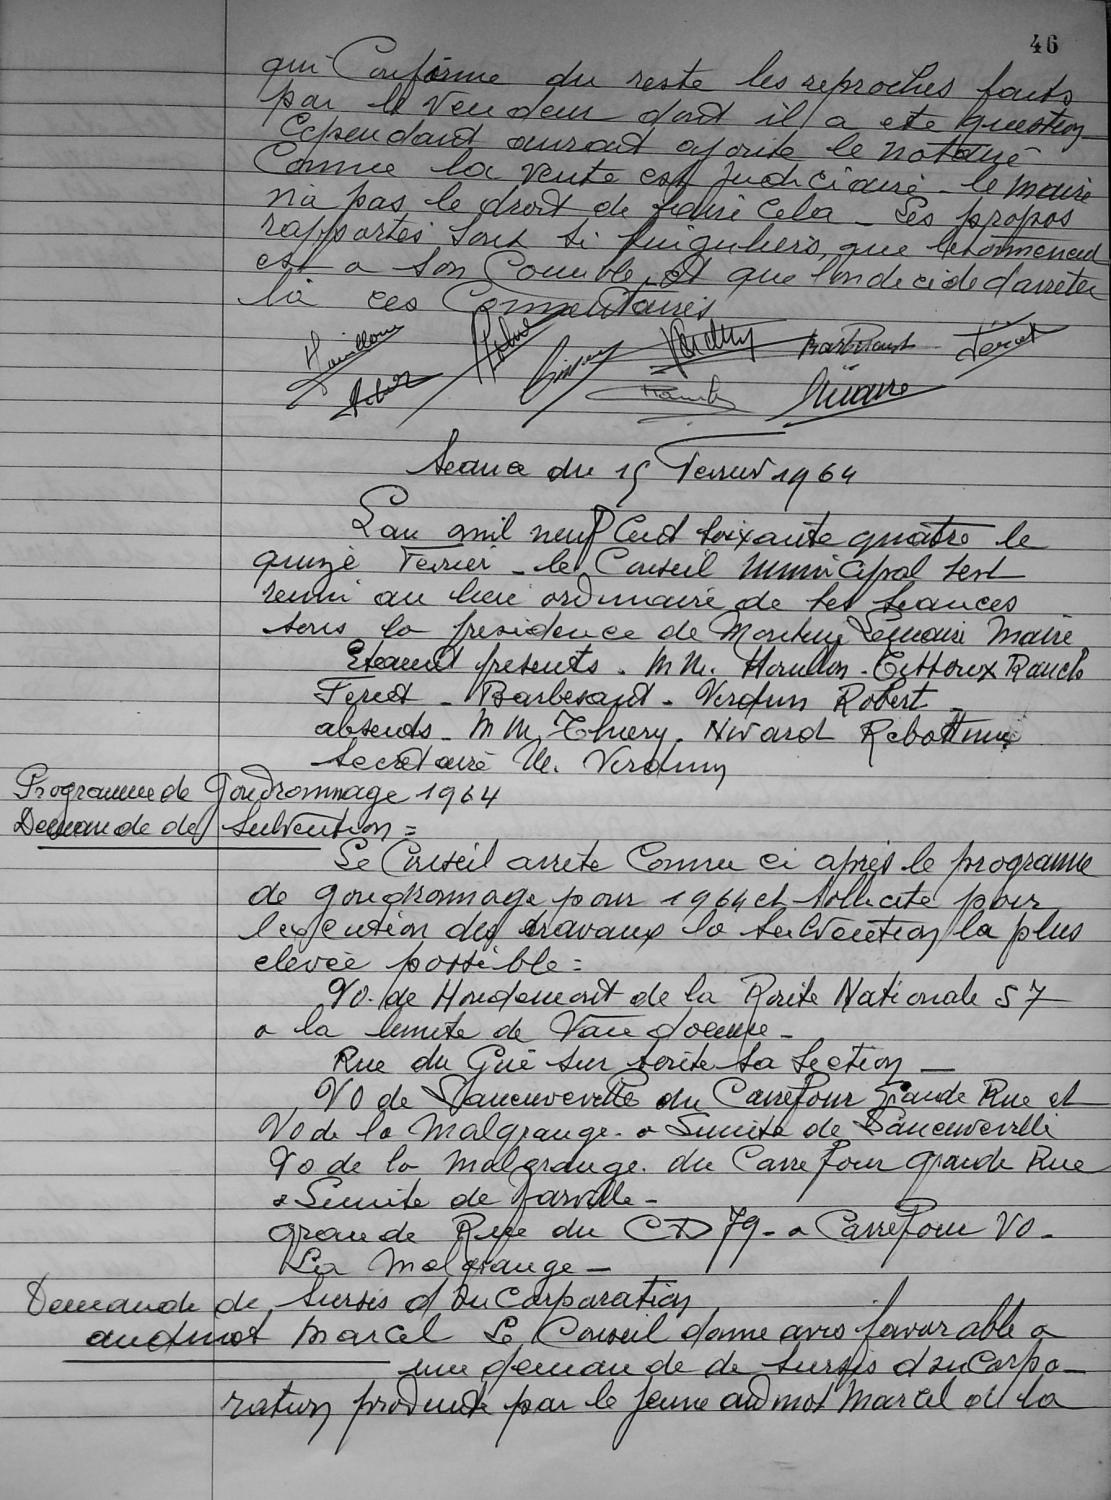 46
qui Confirme du reste les reproches faits
par le Vendeur dont il a ete question
Cependant aurait ajouté le notaire
Comme la vente est judiciaire - le Maire
n'a pas le droit de faire Cela - Ses propos
rapportés sont si singuliers, que l'etonnement
est a son Comble, et que l'on decide d'arreter
là ces Commentaires
Verdun Barbesant Feret
Seance du 15 Fevrier 1964
L'an mil neuf Cent soixante quatre le
quinze Fevrier - le Conseil Municipal s'est
reuni au lieu ordinaire de ses seances
sous la presidence de Monsieur Lemaire Maire
Etaient presents - MM. Houillon - Rauch
Feret - Barbesant - Verdun Robert -
absents - MM Thiery. Nivard
Secretaire M. Verdun
Programme de Goudronnage 1964
Demande de subvention =
Le Conseil arrete Comme ci après le programme
de goudronnage pour 1964 et sollicite pour
l'execution des travaux la subvention la plus
elevée possible =
VO. de Houdemont de la Route Nationale 57
a la limite de Vandoeuvre -
Rue du Gué sur toute sa section -
VO de Laneuveville du Carrefour Grande Rue et
VO de la Malgrange - a Limite de Laneuveville
VO de la Malgrange. du Carrefour Grande Rue
a Limite de Jarville -
Grande Rue du CD 79 - a Carrefour VO -
La Malgrange -
Demande de Sursis d'Incorporation
audmot Marcel Le Conseil donne avis favorable a
une demande de Sursis d'incorpo-
ration produite par le jeune audmot Marcel de la